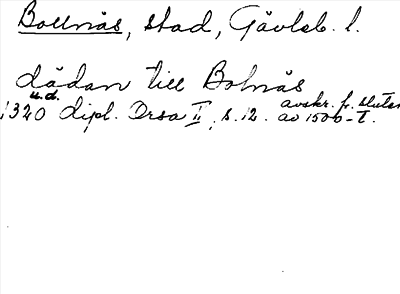 Bollnäs, stad, Gävleb. l.
dådan till Bolnäs
u.d.
1320 dipl. Orsa II, s. 12. avskr. fr. slutet
av 1500-t.